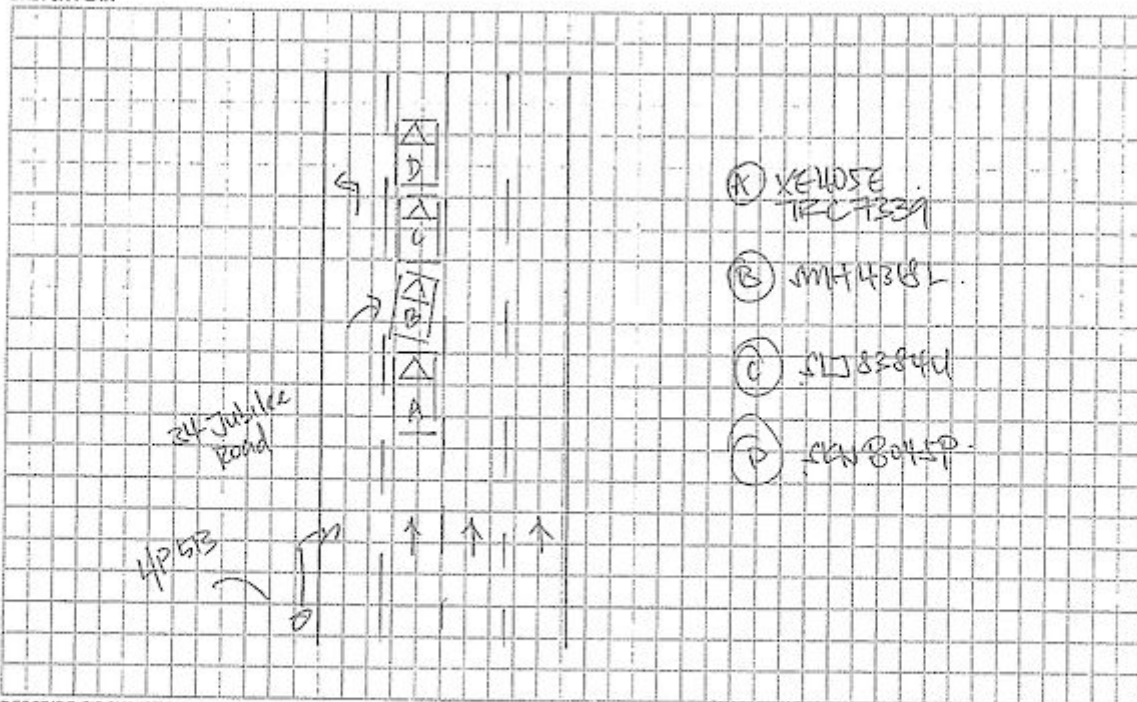 D
C
B
A
24 Jubilee
Road
(A) XE405E
TRC7339
(B) SMH4318L.
(C) SLJ8384U
(D) SKN8045P.